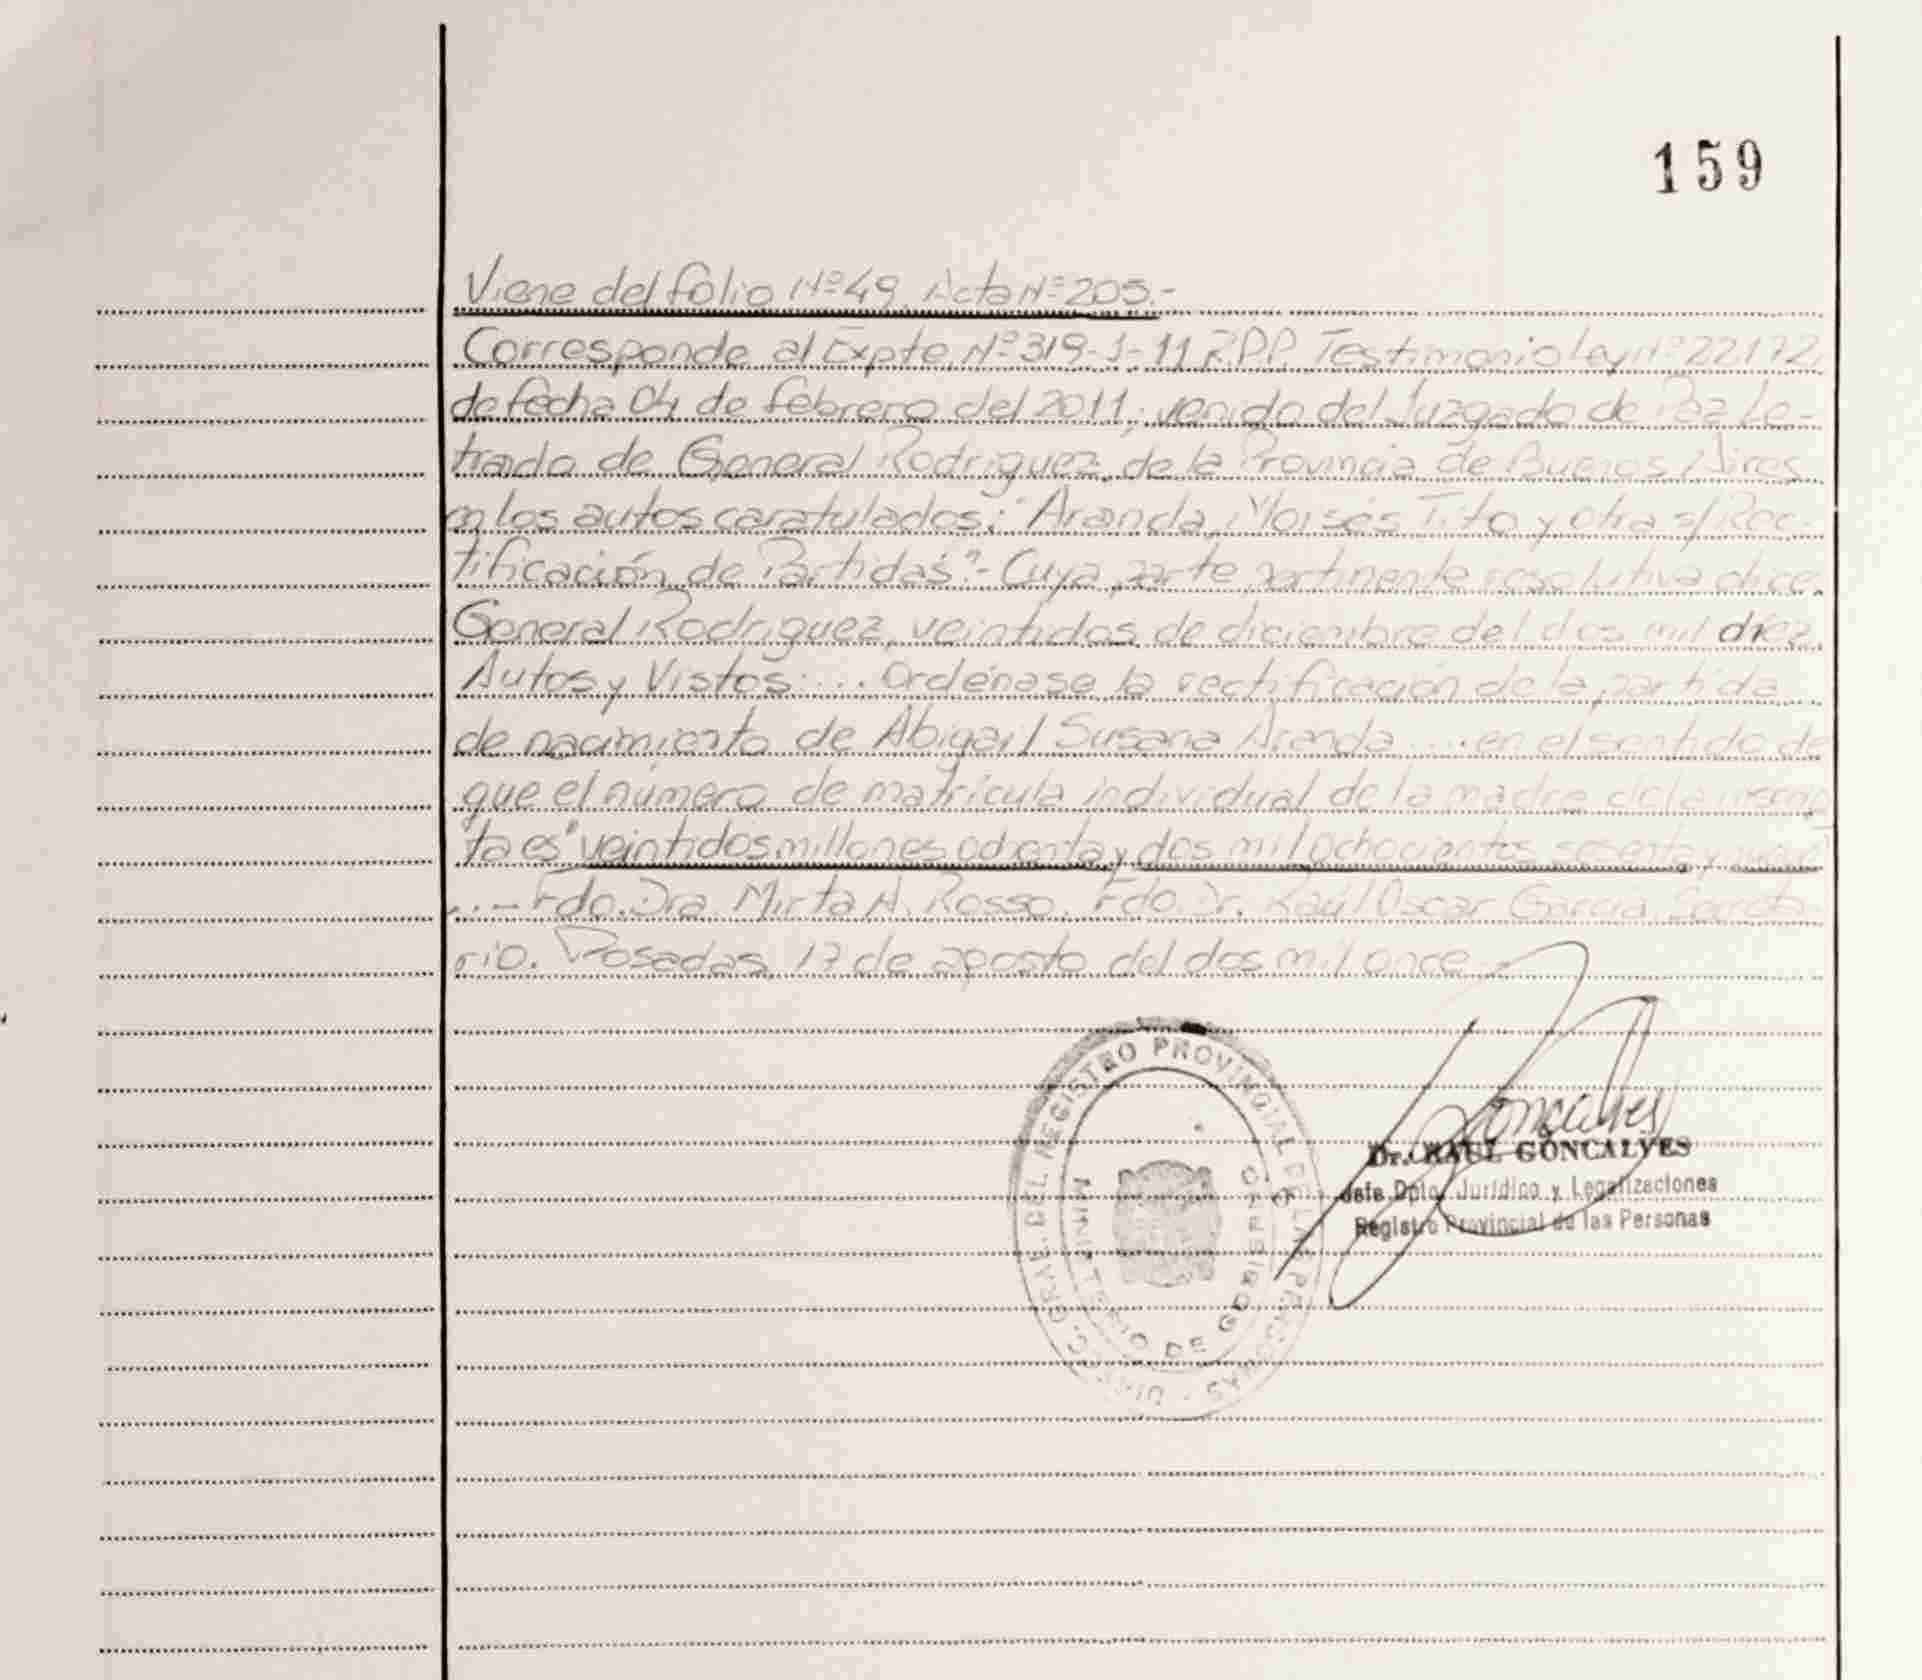 159
Viene del folio Nº 49. Acta Nº 205.-
Corresponde al Expte. Nº 319-J-11 R.P.P. Testimonio Ley Nº 22172,
de fecha 04 de febrero del 2011, venido del Juzgado de Paz Le-
trado de General Rodriguez, de la Provincia de Buenos Aires
en los autos caratulados: "Aranda, Moisés Tito y otra s/ Rec-
tificación de Partidas".- Cuya parte pertinente resolutiva dice.
General Rodriguez, veintidos de diciembre del dos mil diez.
Autos y Vistos: ... Ordénase la rectificación de la partida
de nacimiento de Abigail Susana Aranda .... en el sentido de
que el número de matrícula individual de la madre de la inscrip
ta es "veintidos millones ochenta y dos mil ochocientos sesenta y nueve"
...- Fdo. Dra. Mirta A. Rosso. Fdo. Dr. Raúl Oscar García Secreta-
rio. Posadas, 17 de agosto del dos mil once.-
Goncalves
Dr. RAUL GONCALVES
Jefe Dpto. Jurídico y Legalizaciones
Registro Provincial de las Personas
DIREC. GRAL. DEL REGISTRO PROVINCIAL DE LAS PERSONAS
MINISTERIO DE GOBIERNO